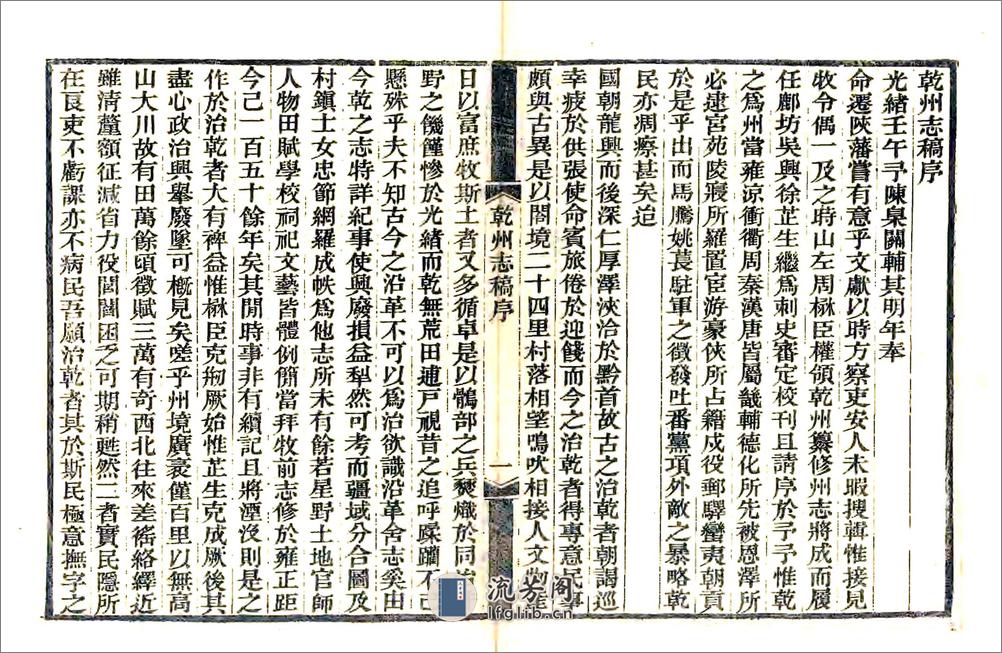 乾州志稿序
光緒壬午予陳臬關輔其明年奉
命遷陝藩嘗有意乎文獻以時方察吏安人未暇搜輯惟接見
牧令偶一及之時山左周楙臣權領乾州纂修州志將成而履
任鄜坊吳興徐芷生繼爲刺史審定校刊且請序於予予惟乾
之爲州當雍涼衝衢周秦漢唐皆屬畿輔德化所先被恩澤所
必建宮苑陵寢所羅置宦游豪俠所占籍戍役郵驛蠻夷朝貢
於是乎出而馬騰姚萇駐軍之徵發吐番黨項外敵之暴略乾
民亦凋瘵甚矣迨
國朝龍興而後深仁厚澤浹洽於黔首故古之治乾者朝謁巡
幸疲於供張使命賓旅倦於迎餞而今之治乾者得專意民事
頗與古異是以閤境二十四里村落相望鳴吠相接人文
乾州志稿序
一
日以富庶牧斯土者又多循卓是以鶻部之兵燹熾於同治
野之饑饉慘於光緒而乾無荒田逋戸視昔之追呼蹂躪不
懸殊乎夫不知古今之沿革不可以爲治欲識沿革舍志奚由
今乾之志特詳紀事使興廢損益犁然可考而疆域分合圖及
村鎮士女忠節網羅成帙爲他志所未有餘若星野土地官師
人物田賦學校祠祀文藝皆體例簡當拜牧前志修於雍正距
今已一百五十餘年矣其閒時事非有續記且將湮沒則是之
作於治乾者大有裨益惟楙臣克刱厥始惟芷生克成厥後其
盡心政治興舉廢墜可概見矣嗟乎州境廣袤僅百里以無高
山大川故有田萬餘頃徵賦三萬有奇西北往來差徭絡繹近
雖清釐額征減省力役閭閻困乏可期稍甦然二者實民隱所
在良吏不虧課亦不病民吾願治乾者其於斯民極意撫字之
流芳閣
lfglib.com